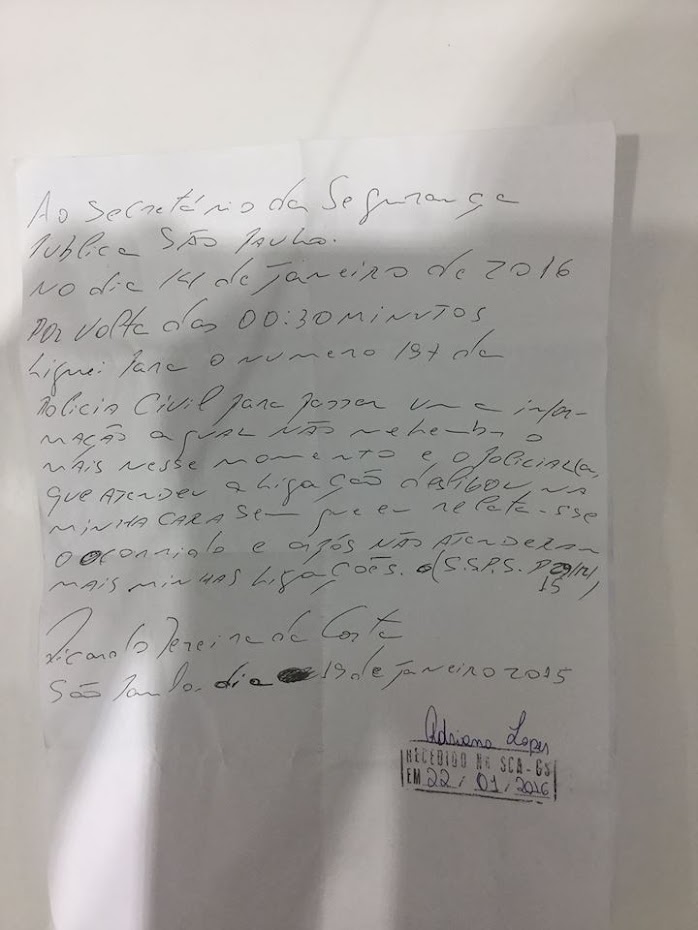 Ao Secretário da Segurança
Publica São Paulo.
No dia 14 de janeiro de 2016
Por volta das 00:30 minutos
Liguei para o numero 197 da
Policia Civil para passar uma infor-
mação a qual não me lembro
mais nesse momento e o Policial(a)
que atendeu a ligação desligou na
minha cara sem que eu relata-sse
o ocorrido e após não atenderam
mais minhas ligações. (S.S.P.S.P 29/12/
15)
Ricardo Pereira da Costa
São Paulo dia 19 de janeiro 2015
Adriana Lopes
RECEBIDO NO SCA-GS
EM 22/01/2016